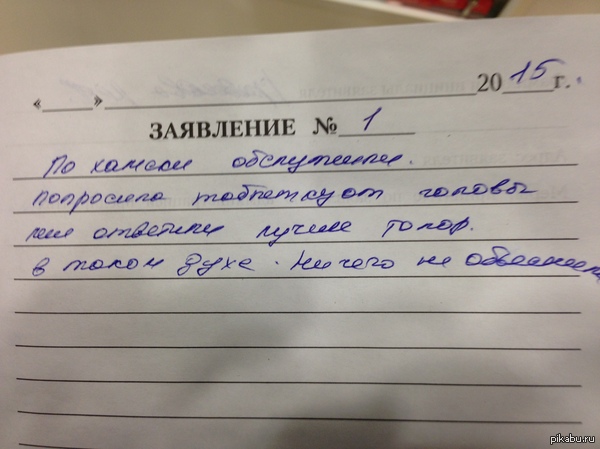 « » 2015 г.
ЗАЯВЛЕНИЕ № 1
По хамски обслужили.
попросила таблетку от головы
мне ответили лучше топор.
в таком духе. Ничего не объяснили
pikabu.ru